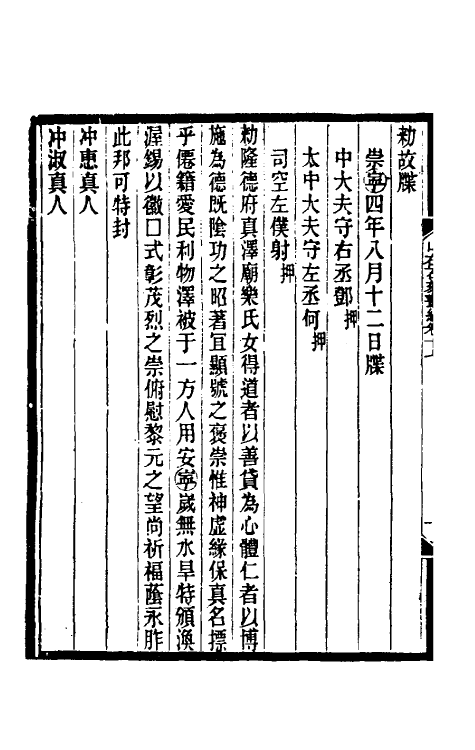 勑故牒
崇寧四年八月十二日牒
中大夫守右丞鄧押
太中大夫守左丞何押
司空左僕射押
勑隆德府真澤廟樂氏女得道者以善貸為心體仁者以博
施為德既陰功之昭著宜顯號之褒崇惟神虛緣保真名摽
乎僊籍愛民利物澤被于一方人用安寧歲無水旱特頒渙
渥錫以徽囗式彰茂烈之崇俯慰黎元之望尚祈福蔭永胙
此邦可特封
冲惠真人
冲淑真人